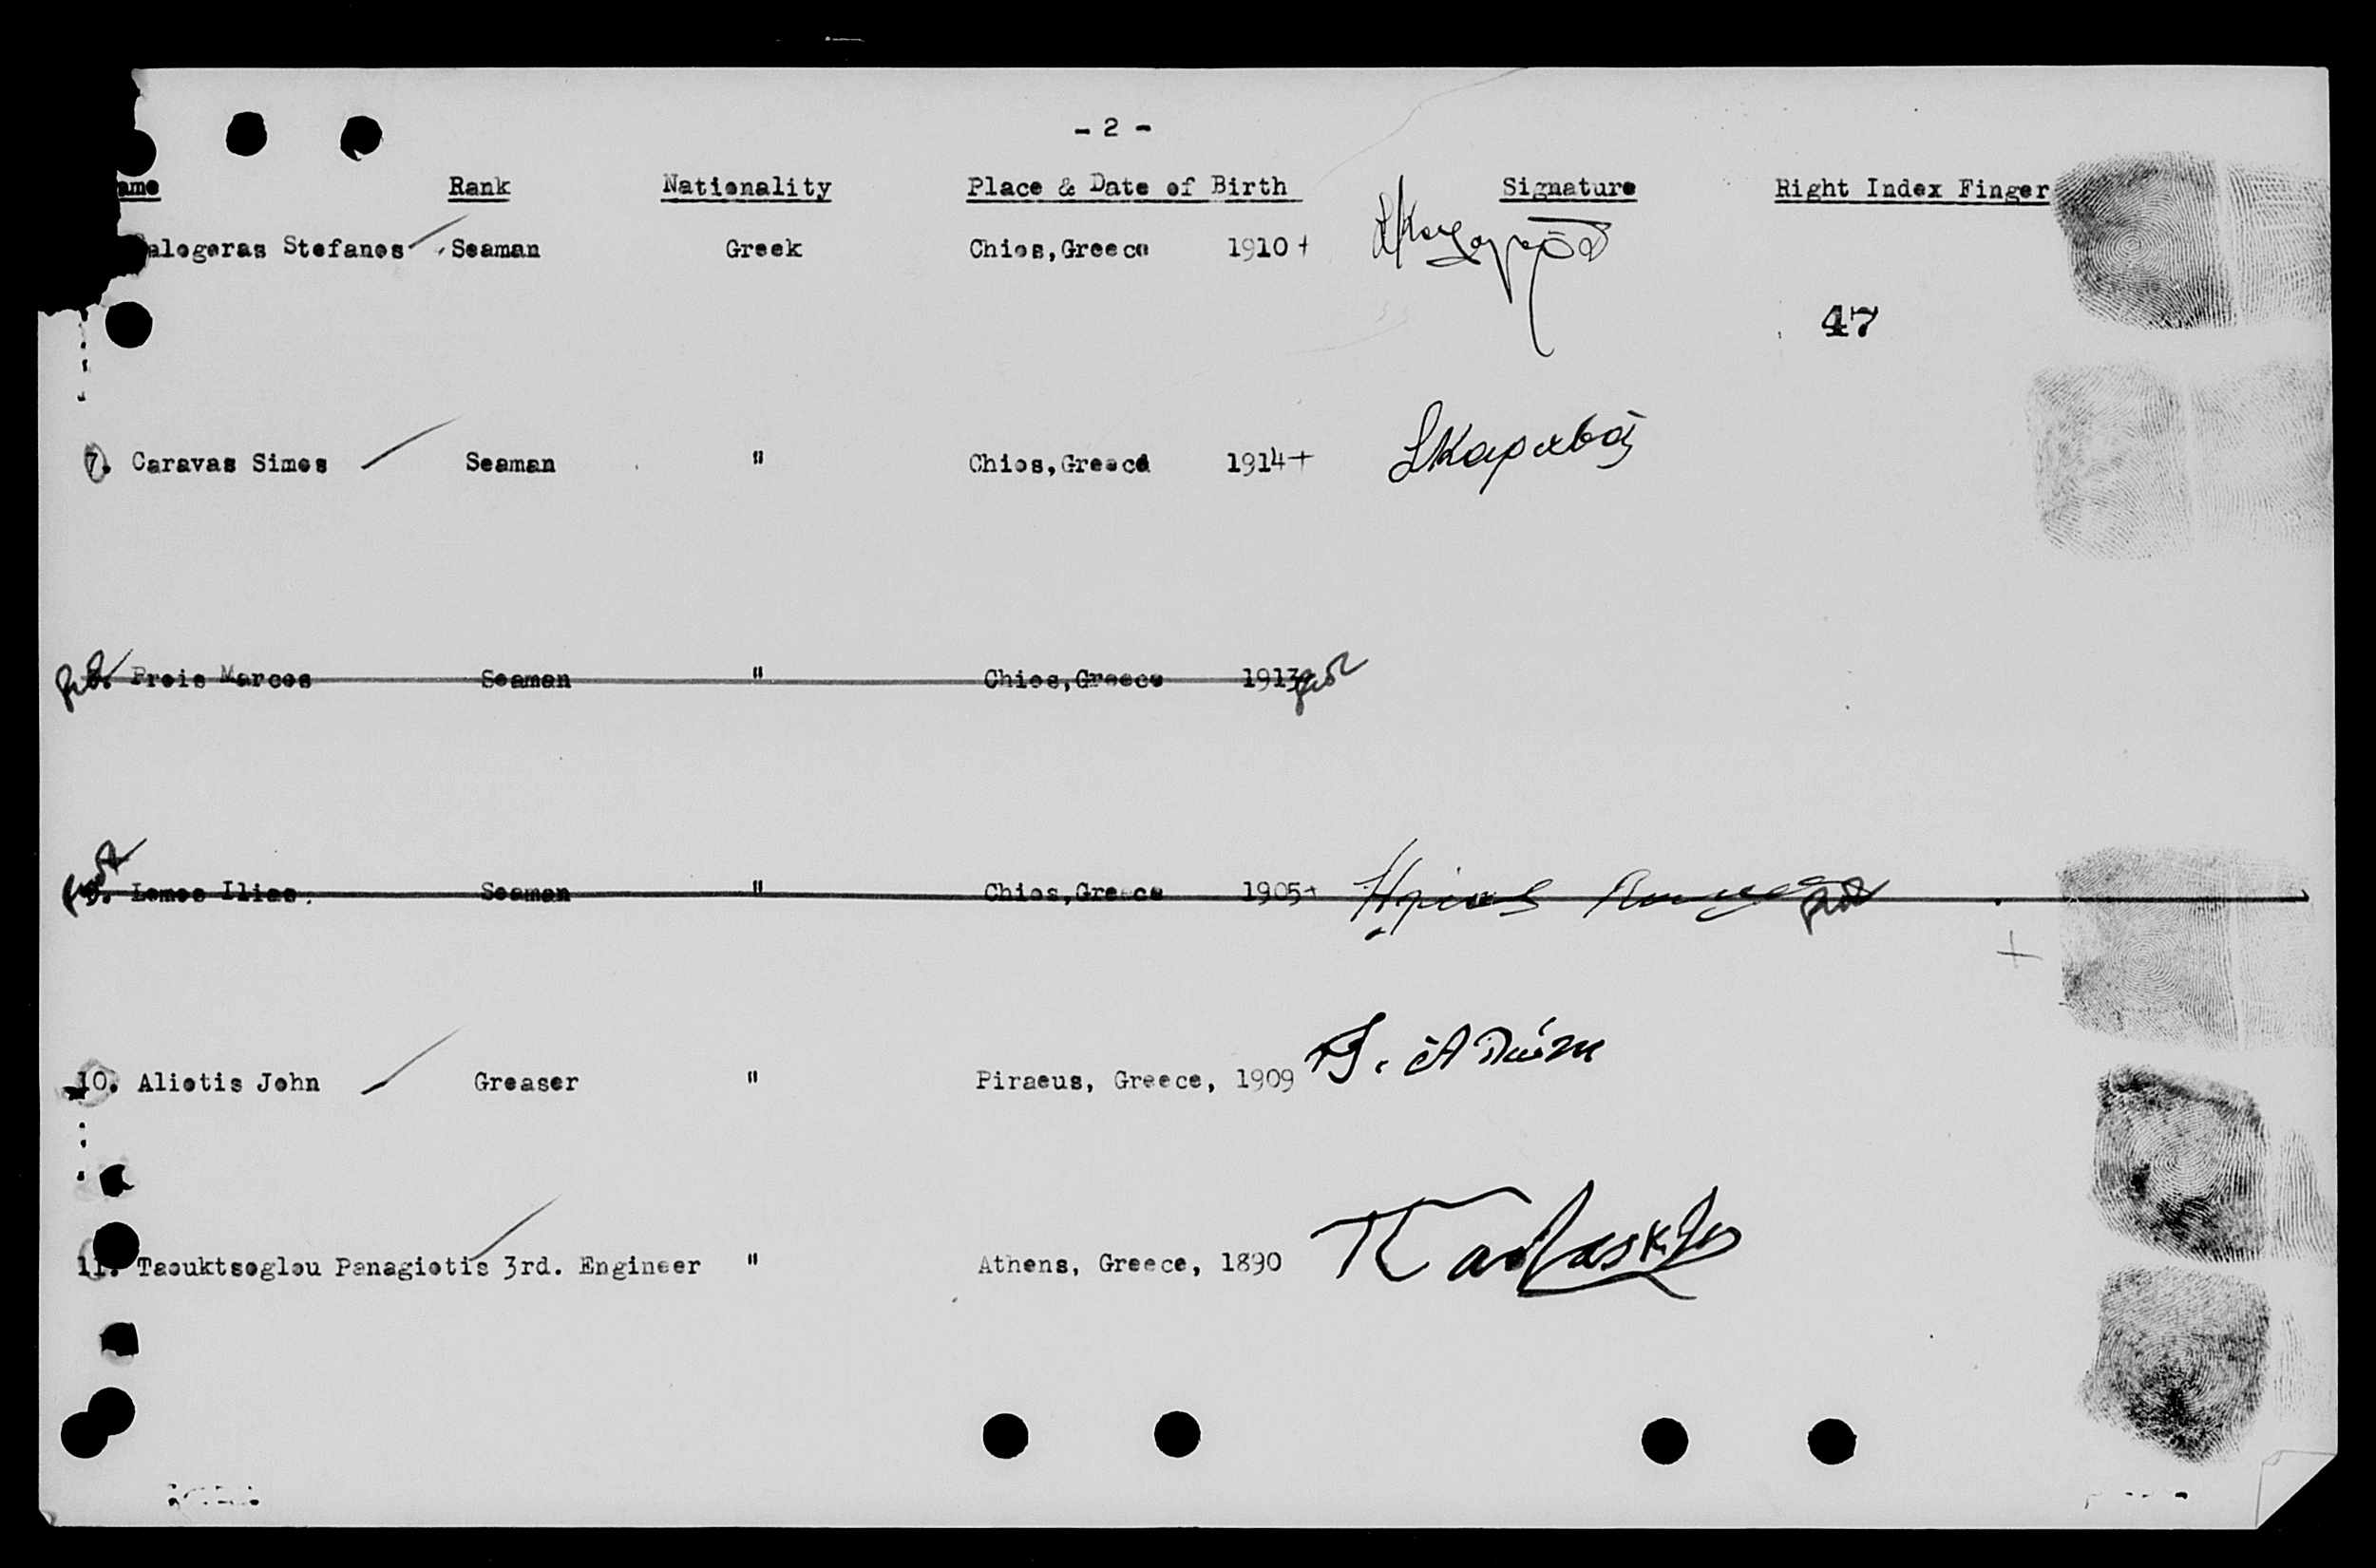 - 2 -
ame Rank Nationality Place & Date of Birth Signature Right Index Finger
alogeras Stefanos Seaman Greek Chios, Greece 1910 +
47
7. Caravas Simos Seaman " Chios, Greece 1914 + ΣΚαραβάς
8. Freis Marcos Seaman " Chios, Greece 1913
9. Lemos Ilias. Seaman " Chios, Greece 1905 +
+
10. Aliotis John Greaser " Piraeus, Greece, 1909
11. Taouktsoglou Panagiotis 3rd. Engineer " Athens, Greece, 1890